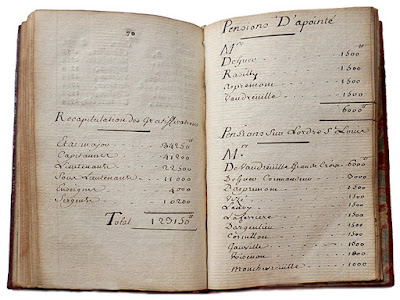 70
Recapitulation des Gratiffications
Etat major 34250
Capitaines 41200
Lieutenants 22500
Sous Lieutenants 11000
Enseignes 4000
Sergents 10200
Total
Pensions D'apointé
Mrs
1500
Rasilly 1500
Aspremont 1500
Vaudreuille 1500
6000
Pensions Sur Lordre St Louis
Mrs
De Vaudreuille Grand Croix 6000
Commandeur 3000
Daspremont 1500
1500
1500
Laferriere 1500
Dargenlieu 1500
1500
1000
1000
1000